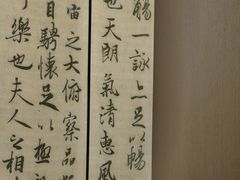 觴一詠亦足以暢
也天朗氣清惠風
宙之大俯察品類
目騁懷足以極
可樂也夫人之相